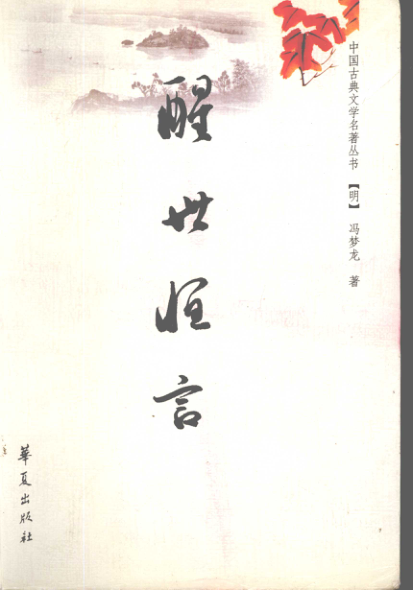 中国古典文学名著丛书 【明】 冯梦龙 著
醒世恒言
華夏出版社